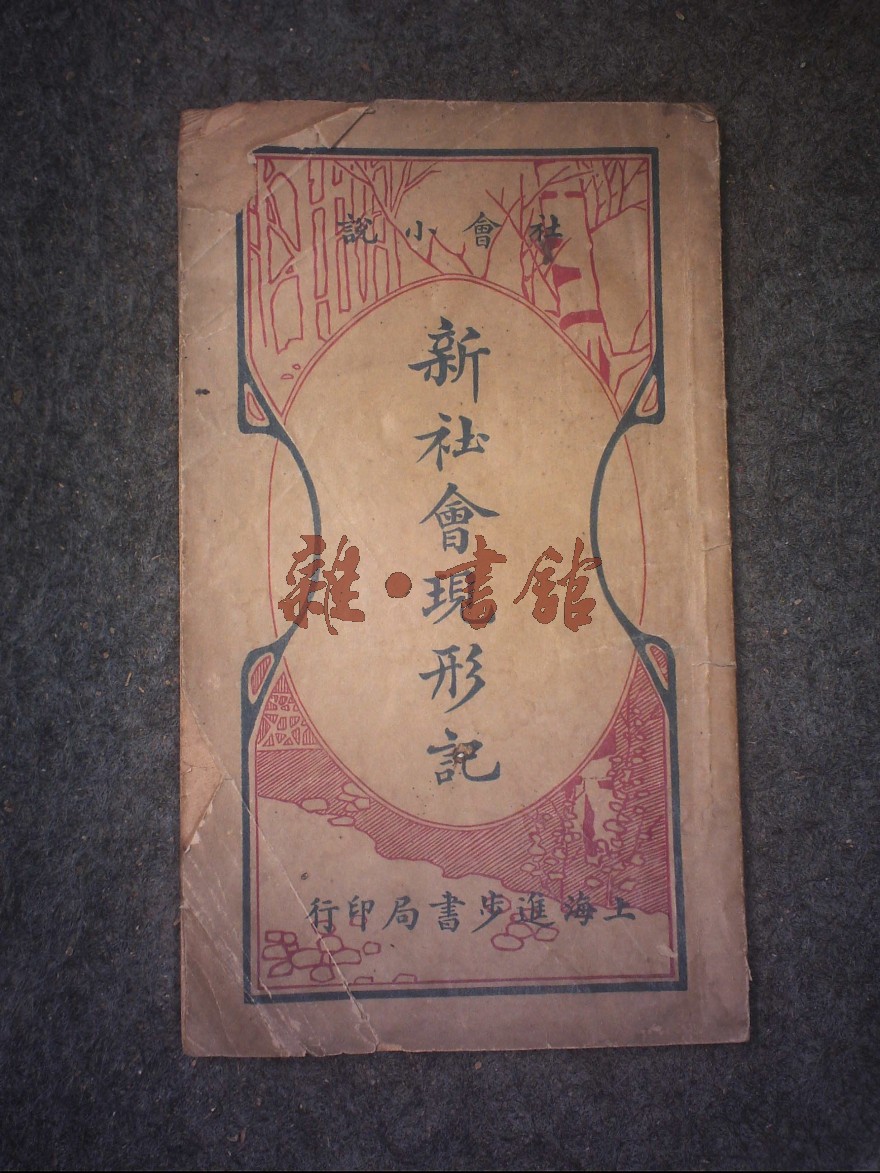 社會小說
新社會現形記
雜·書館
上海進步書局印行